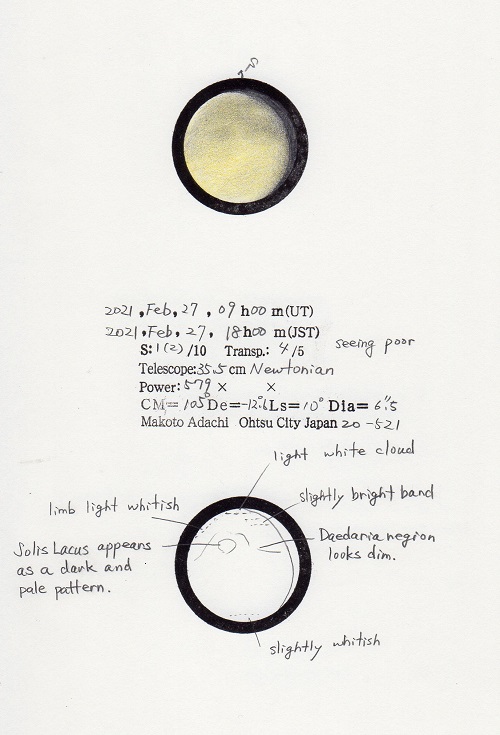 S
2021, Feb, 27, 09 h 00 m (UT)
2021, Feb, 27, 18 h 00 m (JST)
S: 1(2) /10 Transp.: 4 /5
seeing poor
Telescope: 35.5 cm Newtonian
Power: 579 × ×
CM= 105° De= -12.°6 Ls= 10° Dia= 6".5
Makoto Adachi Ohtsu City Japan 20-521
light white cloud
limb light whitish
slightly bright band
Solis Lacus appears
as a dark and
pale pattern.
Daedaria region
looks dim.
slightly whitish